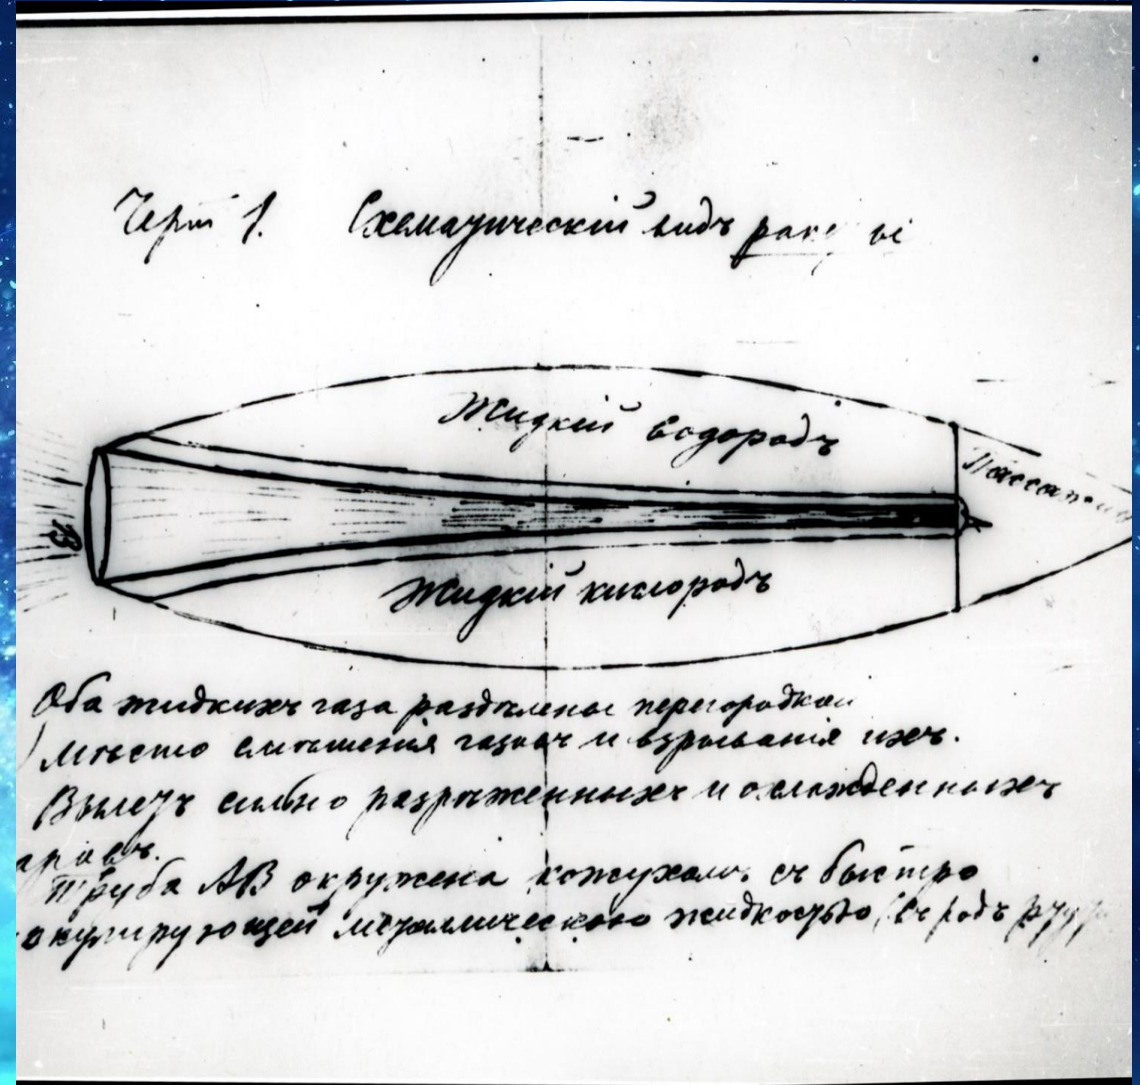 Черт 1. Схематический видъ ракеты
Жидкій водородъ
Пассажиры
В
Жидкій кислородъ
Оба жидкихъ газа раздѣлены перегородкой
Мѣсто смѣшенія газовъ и взрыванія ихъ.
Вылетъ сильно разрѣженныхъ и охлажденныхъ
аровъ.
Труба АВ окружена кожухомъ съ быстро
кулирующей металлическою жидкостью (въ родѣ